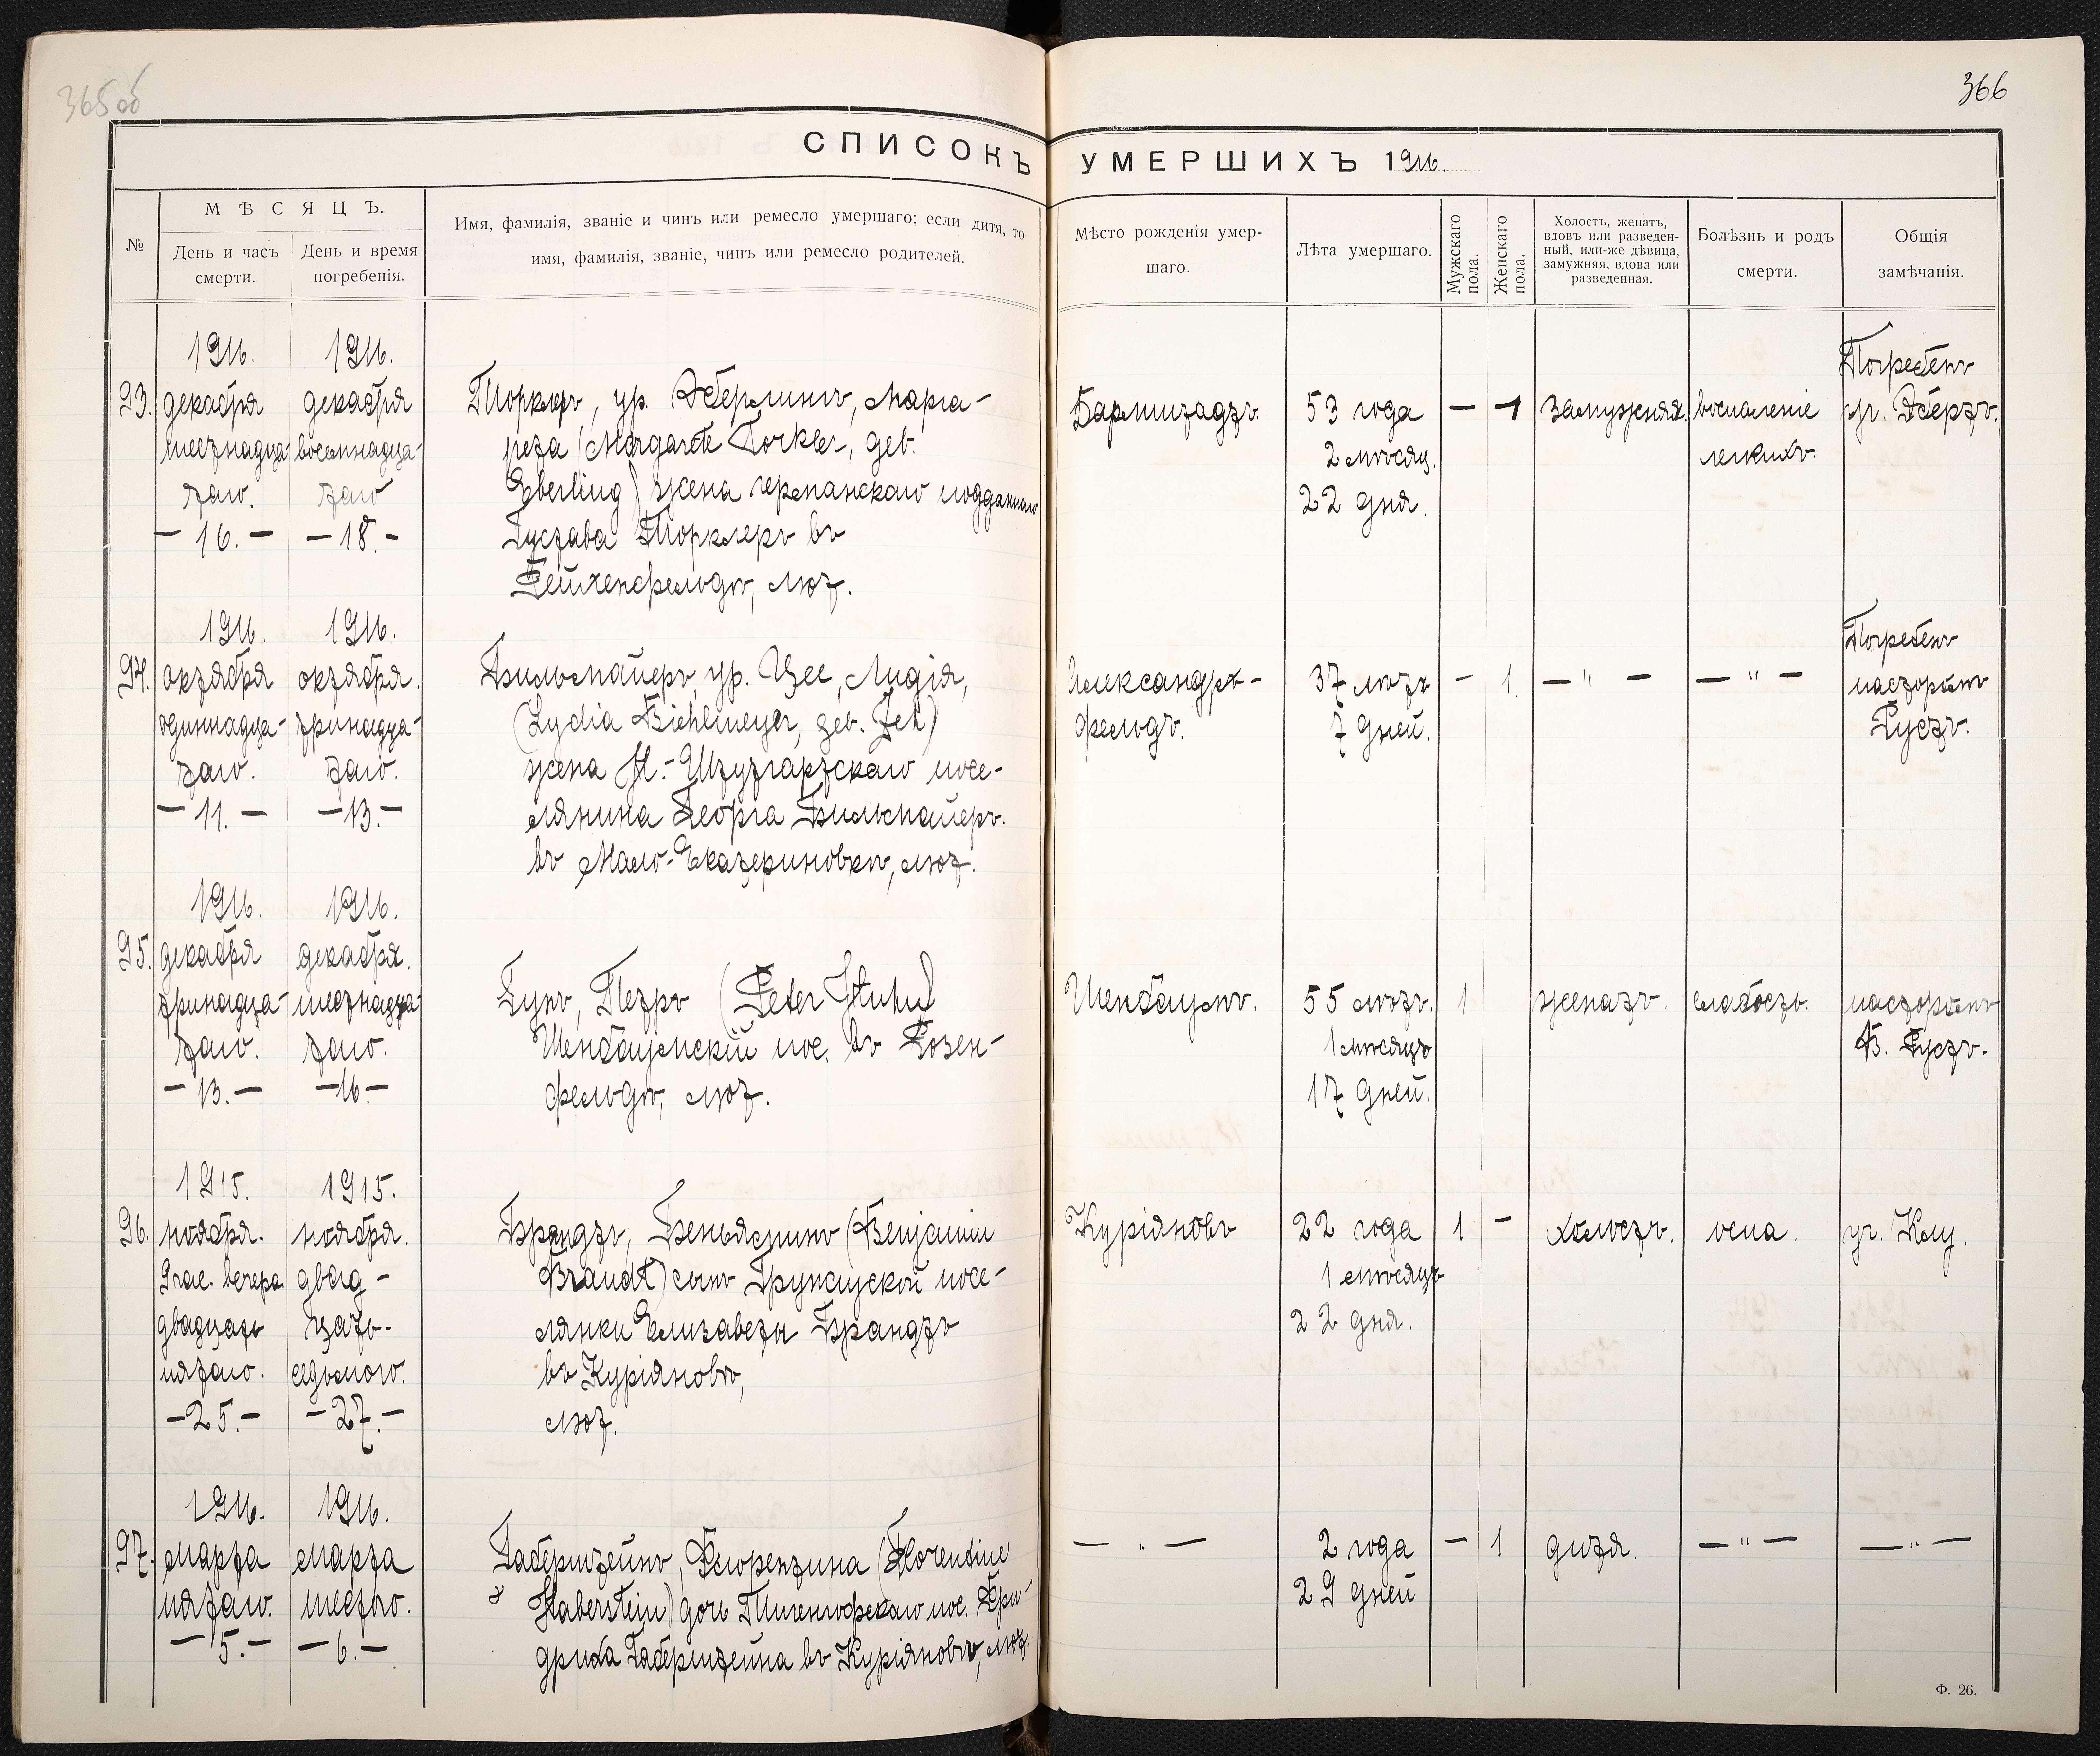 365об
366
СПИСОКЪ УМЕРШИХЪ 1916.
№
МѢСЯЦЪ.
День и часъ смерти.
День и время погребенія.
Имя, фамилія, званіе и чинъ или ремесло умершаго; если дитя, то
имя, фамилія, званіе, чинъ или ремесло родителей.
Мѣсто рожденія умер-
шаго.
Лѣта умершаго.
Мужскаго пола.
Женскаго пола.
Холостъ, женатъ,
вдовъ или разведен-
ный, или-же дѣвица,
замужняя, вдова или
разведенная.
Болѣзнь и родъ
смерти.
Общія
замѣчанія.
93.
1916.
декабря
шестнадца-
таго.
— 16. —
1916.
декабря
восемнадца-
таго
— 18. —
Торклеръ, ур. Эберлингъ, Марга-
рета (Margarete Torkler, geb.
Eberling) жена германскаго подданнаго
Густава Торклеръ въ
Рейхенфельдѣ, лют.
Бармштадтъ.
53 года
2 мѣсяц.
22 дня.
— 1
замужняя.
воспаленіе
легкихъ.
Погребенъ
уч. Эбертъ.
94.
1916.
октября
одиннадца-
таго.
— 11. —
1916.
октября.
тринадца-
таго.
— 13. —
Бильмайеръ, ур. Цее, Лидія,
(Lydia Biehlmeyer, geb. Zeh)
жена Н.-Штутгартскаго посе-
лянина Георга Бильмайеръ.
въ Мало-Екатериновкѣ, лют.
Александръ-
фельдъ.
37 лѣтъ
7 дней.
— 1.
— " —
— " —
Погребенъ
пасторомъ
Густъ.
95.
1916.
декабря
тринадца-
таго.
— 13. —
1916.
декабря.
шестнадца-
таго.
— 16 —
Гунъ, Петръ (Peter Huhn)
Шенбаумскій пос. въ Розен-
фельдѣ, лют.
Шенбаумъ.
55 лѣтъ.
1 мѣсяцъ
17 дней.
1
женатъ.
слабость.
пасторомъ
В. Густъ.
96.
1915.
ноября.
9 час. вечера
двадцать
пятаго.
— 25. —
1915.
ноября.
двад-
цать-
седьмого.
— 27. —
Брандтъ, Беньяминъ (Benjamin
Brandt) сынъ Грунауской посе-
лянки Елизаветы Брандтъ
въ Куріяновѣ,
лют.
Куріяновъ
22 года
1 мѣсяцъ
22 дня.
1 —
холостъ.
оспа.
уч. Клу.
97.
1916.
марта
пятаго.
— 5. —
1916.
марта
шестого.
— 6. —
Габерштейнъ, Флорентина (Florentine
Haberstein) дочь Тигенгофскаго пос. Фри-
дриха Габерштейна въ Куріяновѣ, лют.
— " —
2 года
29 дней
— 1
дитя.
— " —
— " —
Ф. 26.